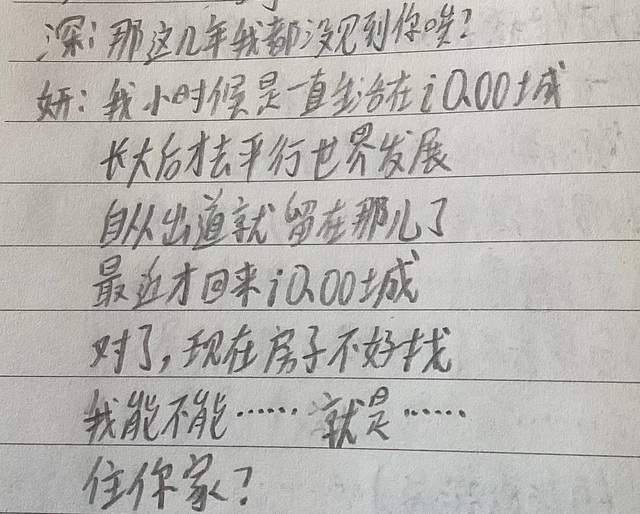 深：那这几年我都没见到你哎？
妍：我小时候是一直生活在i0.00土城
长大后才去平行世界发展
自从出道就留在那儿了
最近才回来i0.00土城
对了，现在房子不好找
我能不能…… 就是……
住你家？